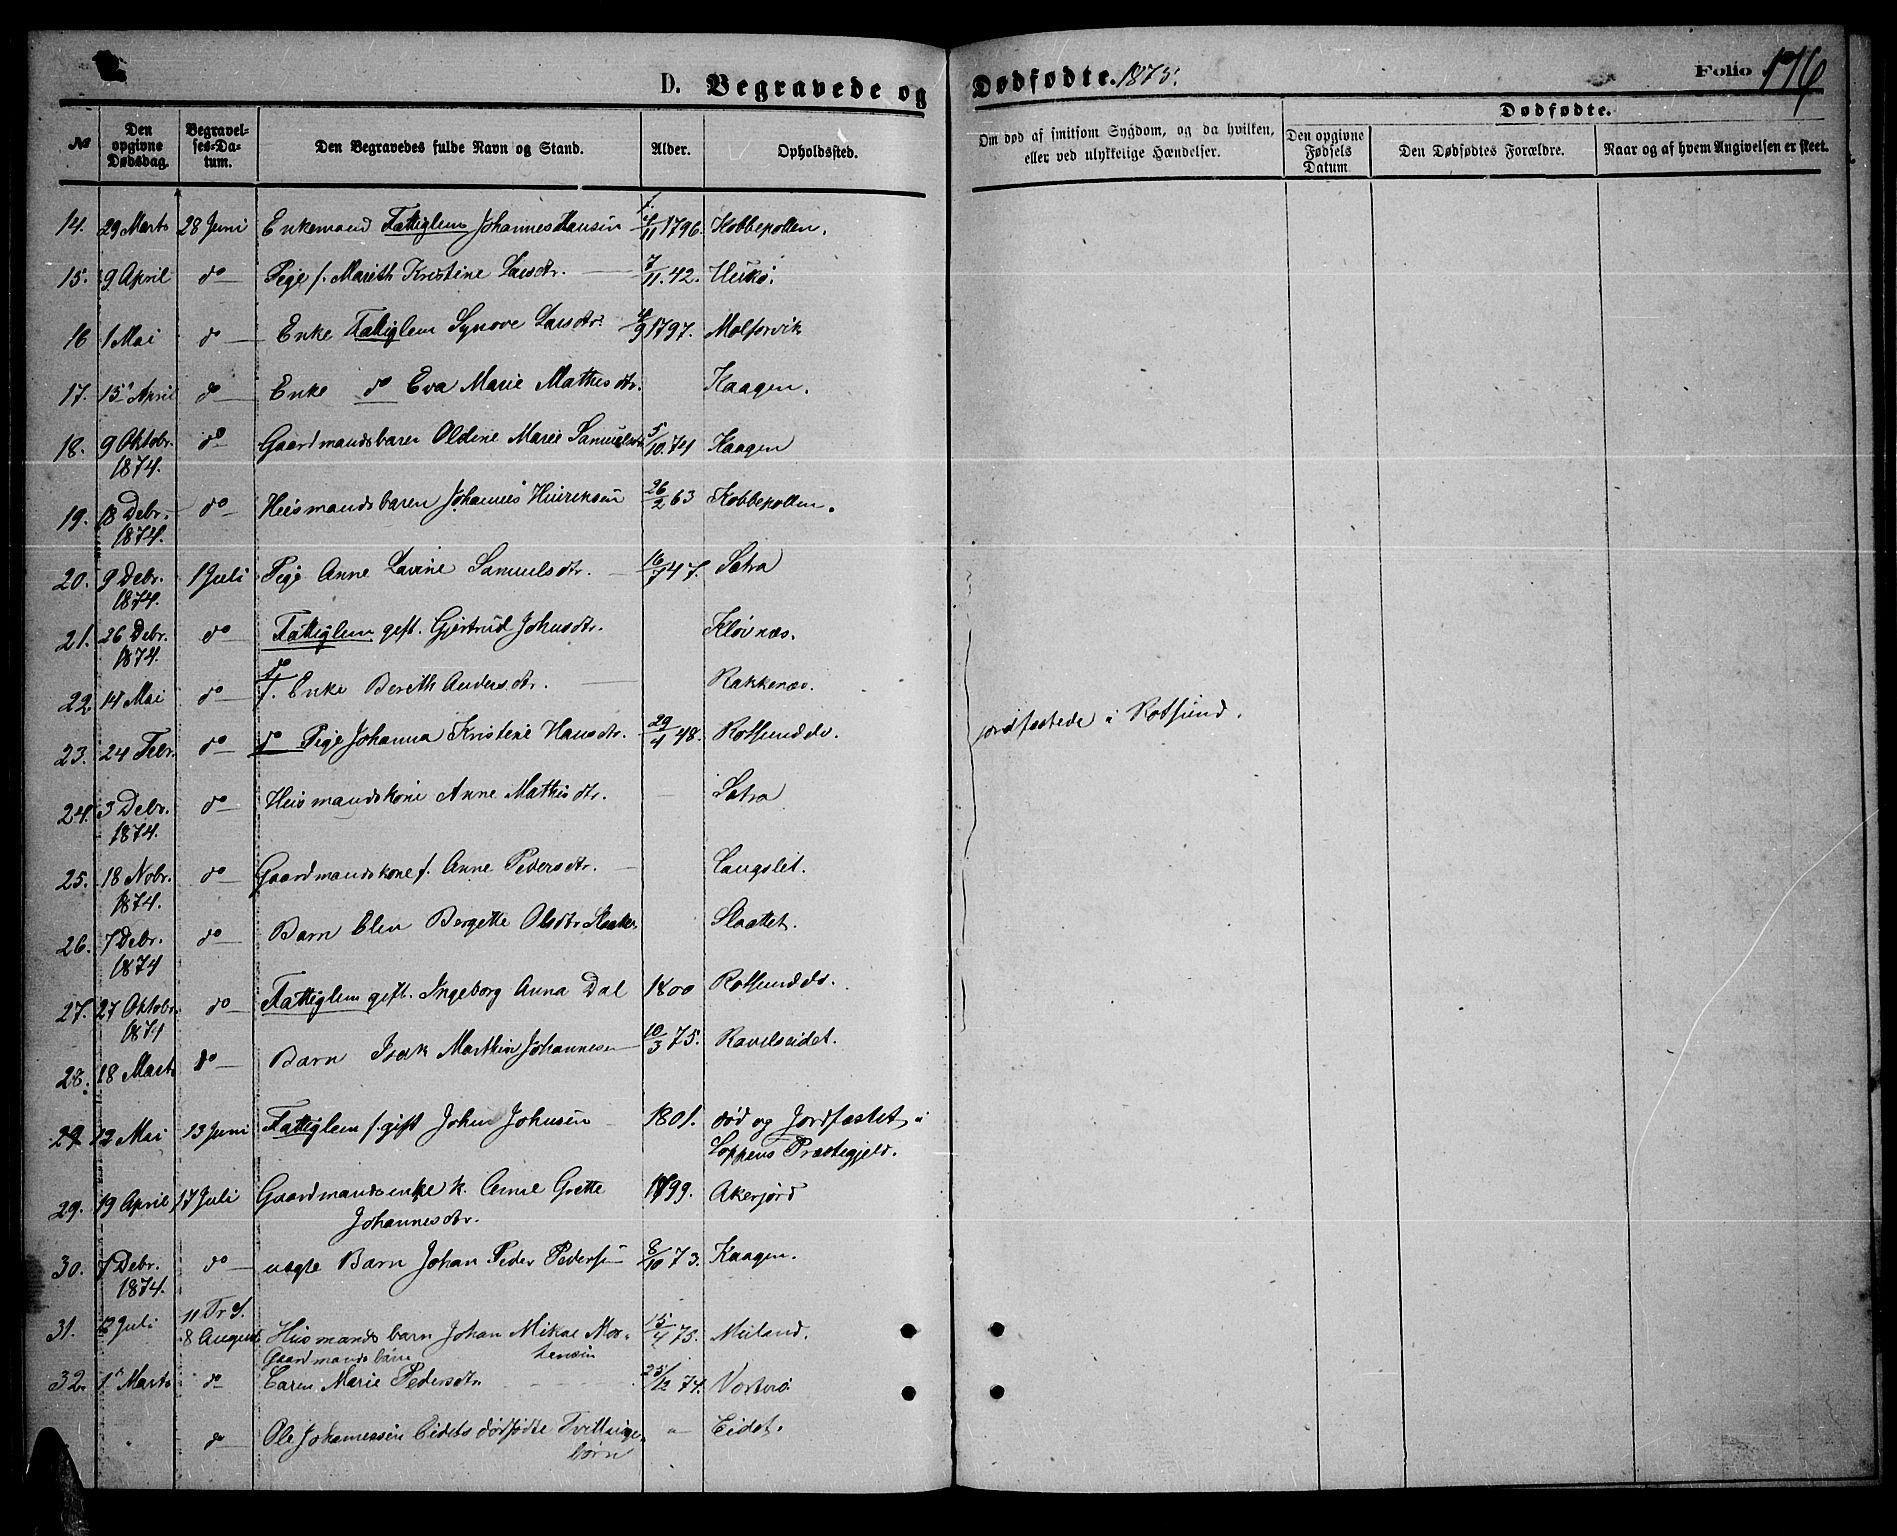 D. Begravede og Dødfødte. 1875. Folio 176
№ Den opgivne Dødsdag. Begravelses-Datum. Den Begravedes fulde Navn og Stand. Alder. Opholdssted. Om død af smitsom Sygdom, og da hvilken, eller ved ulykkelige Hændelser. Dødfødte. Den opgivne Fødsels Datum. Den Dødfødtes Forældre. Naar og af hvem Angivelsen er skeet.
14. 29 Marts 28 Juni Enkemand Fattiglem Johannes Hansen 4/11 1796. Kobbepollen.
15. 9 April do Pige f. Marith Kristine Larsdtr. 7/11. 42. Hukø.
16 1 Mai do Enke Fattiglem Synove Larsdtr. 4/9 1797. Molforvik
17. 15 April do Enke do Eva Marie Mathisdtr. Kaagen.
18. 9 Oktobr. do Gaardmandsbaren Oldine Marie Samuelsdtr 5/10. 74 Kaagen
1874.
19. 18 Debr. do Huusmandsbaren Johannes Hinriksen 26/2 63 Kobbepollen.
1874.
20. 9 Debr. 1 Juli Pige Anne Lavine Samuelsdtr. 16/7 47. Sotra
1874.
21. 26 Debr. do Fattiglem gift. Gjertrud Johnsdtr. Kløvnæs.
1874.
22 14 Mai do do f. Enke Berith Andersdtr. Rakkenæs.
23. 24 Febr. do do Pige Johanna Kristine Hansdtr. 29/4 48. Rotsunddv. jordfæstede i Rotsund.
24. 3 Debr. do Huusmandskone Anne Mathisdtr. Sotra
1874.
25. 18 Nobr. do Gaardmandskone f. Anne Pedersdtr. Langslet.
1874.
26. 7 Debr. do Barn Elen Bergette Olsdtr Slaattet. Slaattet.
1874
27. 27 Oktobr. do Fattiglem gift. Ingeborg Anna Dal 1800 Rotsunddv.
1874
28. 18 Marts do Barn Isak Marthin Johannesen 10/3 75. Ravelseidet.
29 12 Mai 13 Juni Fattiglem f. gift John Johnsen 1801. død og Jordfæstet i
Loppens Præstegjeld.
29. 19 April 17 Juli Gaardmandsenke k. Anne Grette 1799. Akerjord
Johannesdtr.
30. 7 Debr. do uægte Barn Johan Peder Pedersen 8/10 73. Kaagen.
1874.
11 Tr S.
31. 12 Juli 8 August Huusmandsbarn Johan Mikal Mor- 15/4 75. Meiland.
tensen
Gaardmandsbarn
32. 1 Marts do Caren Marie Pedersdtr. 25/12 74. Vorterø
do Ole Johannessen Eidets dødfødte Tvillinge- Eidet.
børn